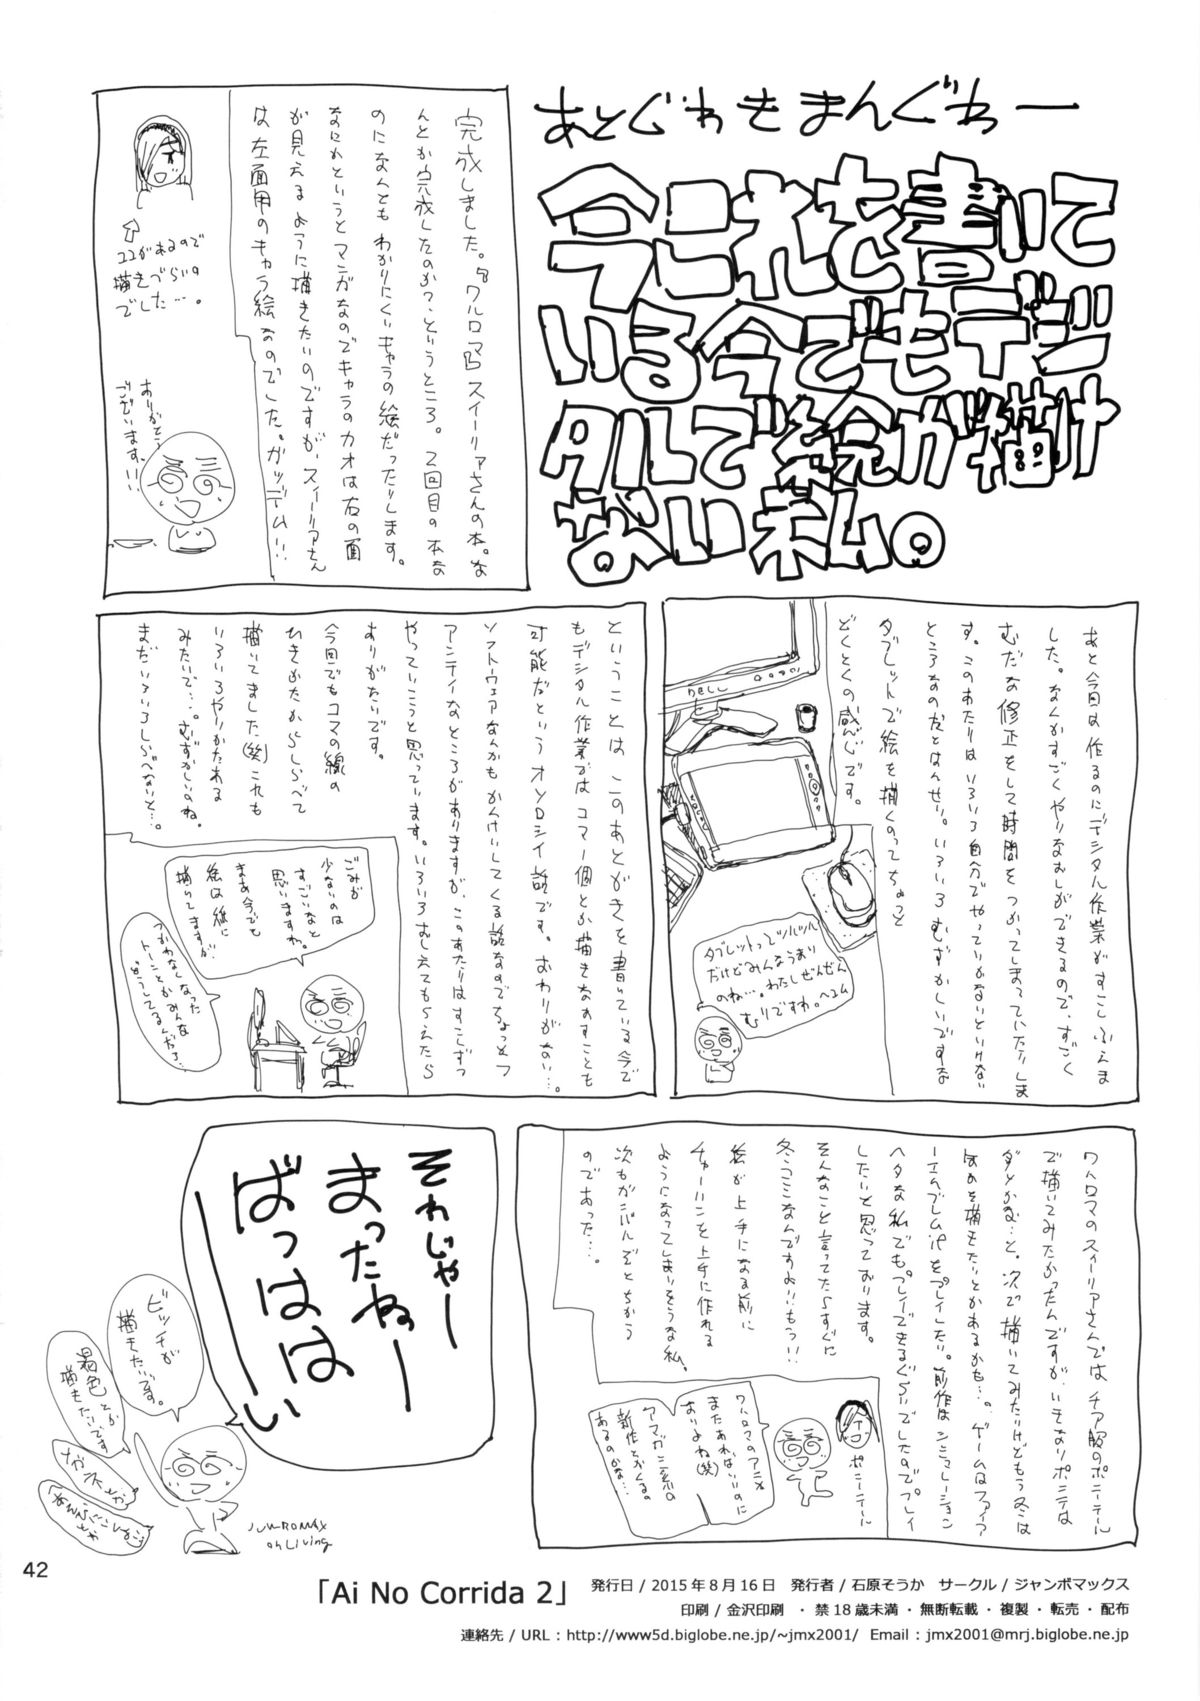 あとぐわきまんぐわー
今これを書いて
いる今でもデジ
タルで絵が描け
ない私。
完成しました。『ワルロマ』スイーリァさんの本。な
んとか完成したのかっというところ。2回目の本な
のになんともわかりにくいキャラの絵だったりします。
なにかというとマンガなのでキャラのカオは右の面
が見えるように描きたいのですが、スイーリアさん
は左面用のキャラ絵なのでした。ガッデム!!
⇧
ココがあるので
描きづらい
でした…。
ありがとう
ございます!!
あと今回は作るのにデジタル作業がすこしふえま
した。なんかすごくやりなおしができるので、すごく
むだな修正をして時間をつかってしまっていたりしま
す。このあたりはいろいろ自分でやっていかないといけない
ところなのだとはんせい。いろいろむずかしいですな
タブレットで絵を描くのってちょっと
どくとくの感じです。
DELL
タブレットってツルツル
だけどみんなうまい
のね…。わたしぜんぜん
むりですわ。
ということはこのあとがきを書いている今で
もデジタル作業ではコマ一個とか描きなおすことも
可能だというオソロシイ話です。おわりがない…。
ソフトウェアなんかもかんけいしてくる話なのでちょっとフ
アンテイなところがありますが、このあたりはすこしずつ
やっていこうと思っています。いろいろおしえてもらえたら
ありがたいです。
今回でもコマの線の
ひきかたからしらべて
描いてました(笑)これも
いろいろやりかたある
みたいで…。むずかしいのね。
まだいろいろしらべないと…。
ごみが
少ないのは
すごいなと
思いますわ。
まあ今でも
絵は紙に
描いてますが…
つかわなくなった
トーンとかみんな
どうしてるんだろ…
ワルロマのスイーリアさんではチア服のポニーテール
で描いてみたかったんですが、いきなりポニテは
ダメかな…と。次で描いてみたいけどもう冬は
なかを描きたいとかあるかも…。ゲームはファイア
ーエムブレムifをプレイしたい。前作はシミュレーション
ヘタな私でもプレイできるぐらいでしたのでプレイ
したいと思っております。
そんなこと言ってたらすぐに
冬コミなんですよ!!もう!!
絵が上手になる前に
チャーハンを上手に作れる
ようになってしまいそうな私。
次もガンバルぞとちかう
のであった…。
ポニーテール
ワルロマのアニメ
またあればいいのに
ありよね(笑)
アマガミ系の
新作とかくるの
あるのかな…
それじゃー
まったねー
ばっははーい
ビッチが
描きたいです。
褐色とか
描きたいです
メガネとか
JUMBOMAX
on Living
42
「Ai No Corrida 2」 発行日 / 2015年8月16日 発行者 / 石原そうか サークル / ジャンボマックス
印刷 / 金沢印刷 ・禁18歳未満・無断転載・複製・転売・配布
連絡先 / URL : http://www5d.biglobe.ne.jp/~jmx2001/ Email : jmx2001@mrj.biglobe.ne.jp